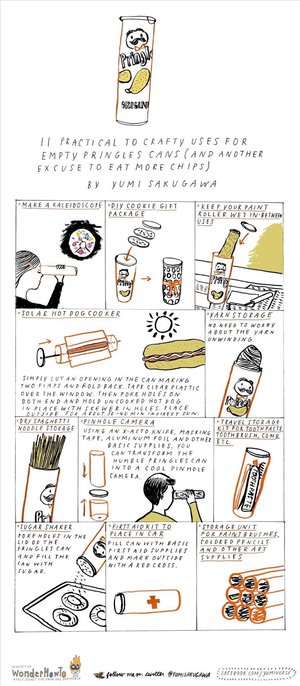 Pringles
11 PRACTICAL TO CRAFTY USES FOR
EMPTY PRINGLES CANS (AND ANOTHER
EXCUSE TO EAT MORE CHIPS)
BY YUMI SAKUGAWA
MAKE A KALEIDOSCOPE
DIY COOKIE GIFT
PACKAGE
KEEP YOUR PAINT
ROLLER WET IN-BETWEEN
USES
SOLAR HOT DOG COOKER
SIMPLY CUT AN OPENING IN THE CAN MAKING
TWO FLAPS AND FOLD BACK. TAPE CLEAR PLASTIC
OVER THE WINDOW. THEN POKE HOLES ON
BOTH END AND HOLD UNCOOKED HOT DOG
IN PLACE WITH SKEWER IN HOLES. PLACE
YARN STORAGE
NO NEED TO WORRY
ABOUT THE YARN
UNWINDING.
DRY SPAGHETTI
NOODLE STORAGE
PINHOLE CAMERA
USING AN X-ACTO KNIFE, MASKING
TAPE, ALUMINUM FOIL AND OTHER
BASIC SUPPLIES, YOU
CAN TRANSFORM THE
HUMBLE PRINGLES CAN
INTO A COOL PINHOLE
CAMERA.
TRAVEL STORAGE
KIT FOR TOOTHPASTE,
TOOTHBRUSH, COMB,
ETC.
SUGAR SHAKER
POKE HOLES IN THE
LID OF THE
PRINGLES CAN
AND FILL THE
CAN WITH
SUGAR.
FIRST AID KIT TO
PLACE IN CAR
FILL CAN WITH BASIC
FIRST AID SUPPLIES
AND MARK OUTSIDE
WITH A RED CROSS.
STORAGE UNIT
FOR PAINTBRUSHES,
COLORED PENCILS
AND OTHER ART
SUPPLIES
WonderHowTo
follow me on twitter @YUMISAKUGAWA
FACEBOOK.COM/YUMIVERSE